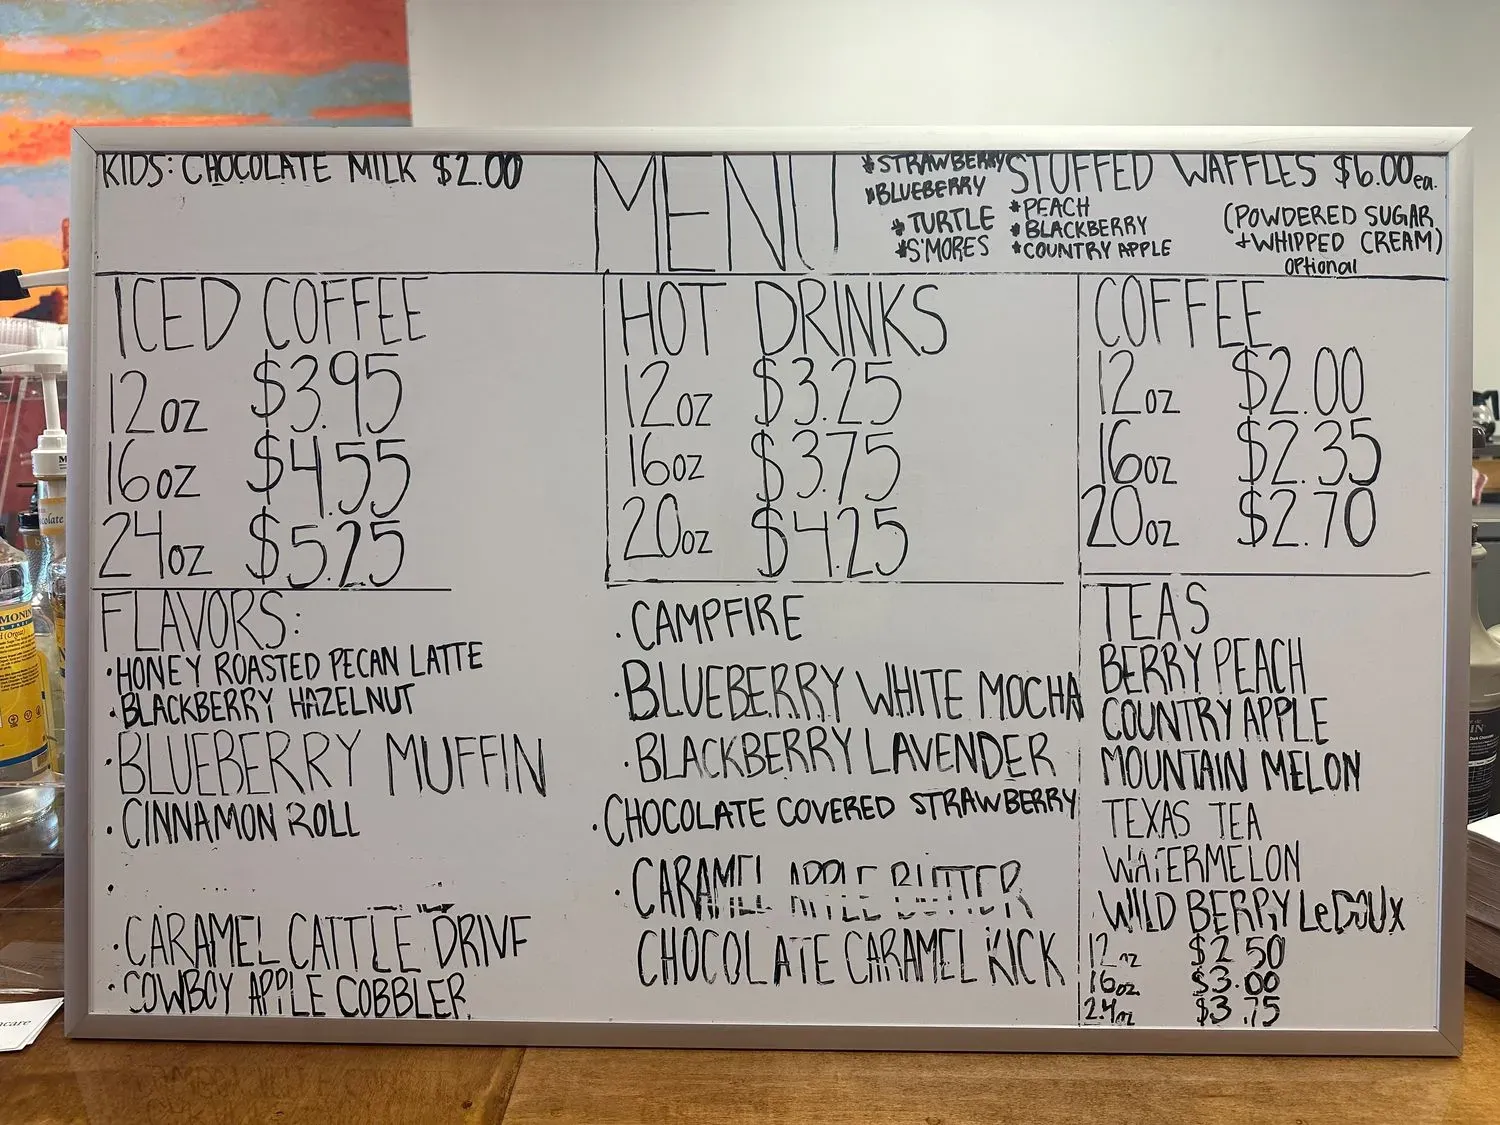 KIDS: CHOCOLATE MILK $2.00
MENU
*STRAWBERRY
*BLUEBERRY
*TURTLE
*S'MORES
STUFFED WAFFLES $6.00 ea.
*PEACH
*BLACKBERRY
*COUNTRY APPLE
(POWDERED SUGAR
+WHIPPED CREAM)
OPtional
ICED COFFEE
12oz $3.95
16oz $4.55
24oz $5.25
HOT DRINKS
12oz $3.25
16oz $3.75
20oz $4.25
COFFEE
12oz $2.00
16oz $2.35
20oz $2.70
FLAVORS:
·HONEY ROASTED PECAN LATTE
·BLACKBERRY HAZELNUT
·BLUEBERRY MUFFIN
·CINNAMON ROLL
·CARAMEL CATTLE DRIVE
·COWBOY APPLE COBBLER
·CAMPFIRE
·BLUEBERRY WHITE MOCHA
·BLACKBERRY LAVENDER
·CHOCOLATE COVERED STRAWBERRY
·CARAMEL APPLE BUTTER
CHOCOLATE CARAMEL KICK
TEAS
BERRY PEACH
COUNTRY APPLE
MOUNTAIN MELON
TEXAS TEA
WATERMELON
WILD BERRY LeDOUx
12oz $2.50
16oz $3.00
24oz $3.75
MONIN